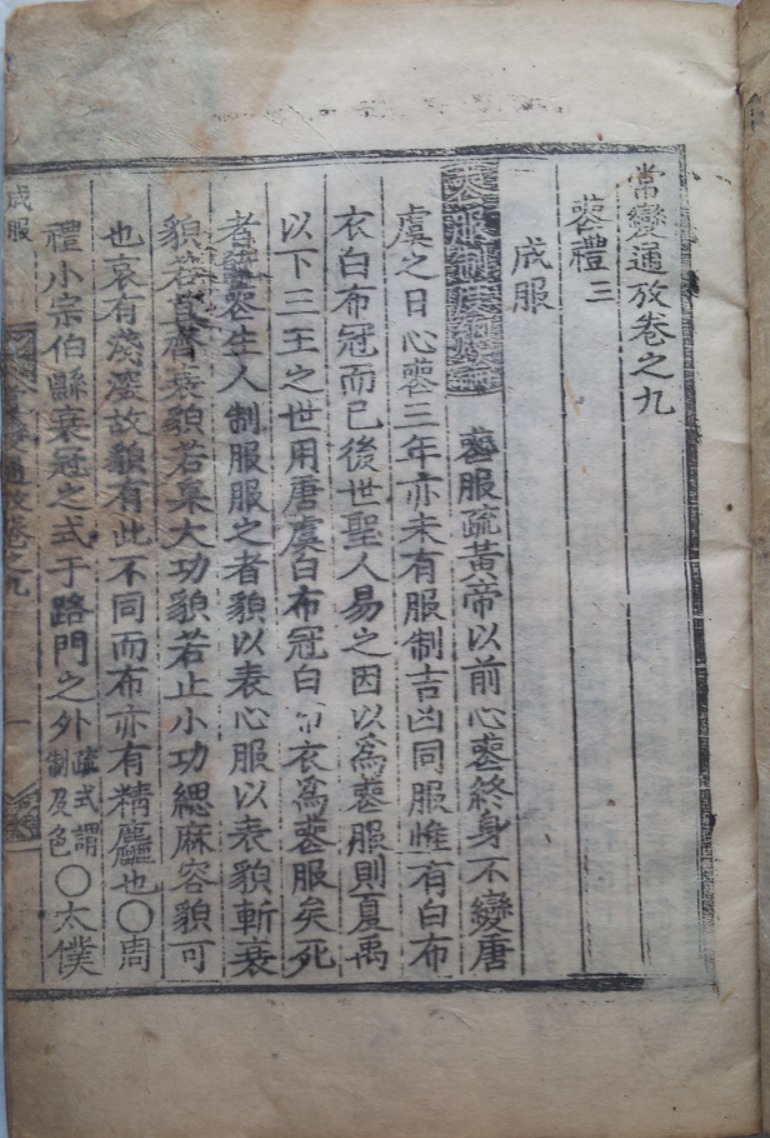 常變通攷卷之九
喪禮三
成服
喪服制度 喪服疏黃帝以前心喪終身不變唐
虞之日心喪三年亦未有服制吉凶同服惟有白布
衣白布冠而已後世聖人易之因以爲喪服則夏禹
以下三王之世用唐虞白布冠白布衣爲喪服矣死
者旣喪生人制服服之者貌以表心服以表貌斬衰
貌若苴齊衰貌若枲大功貌若止小功緦麻容貌可
也哀有淺深故貌有此不同而布亦有精麤也○周
禮小宗伯縣衰冠之式于路門之外疏式謂制及色○太僕
成服
常變通攷卷之九
一